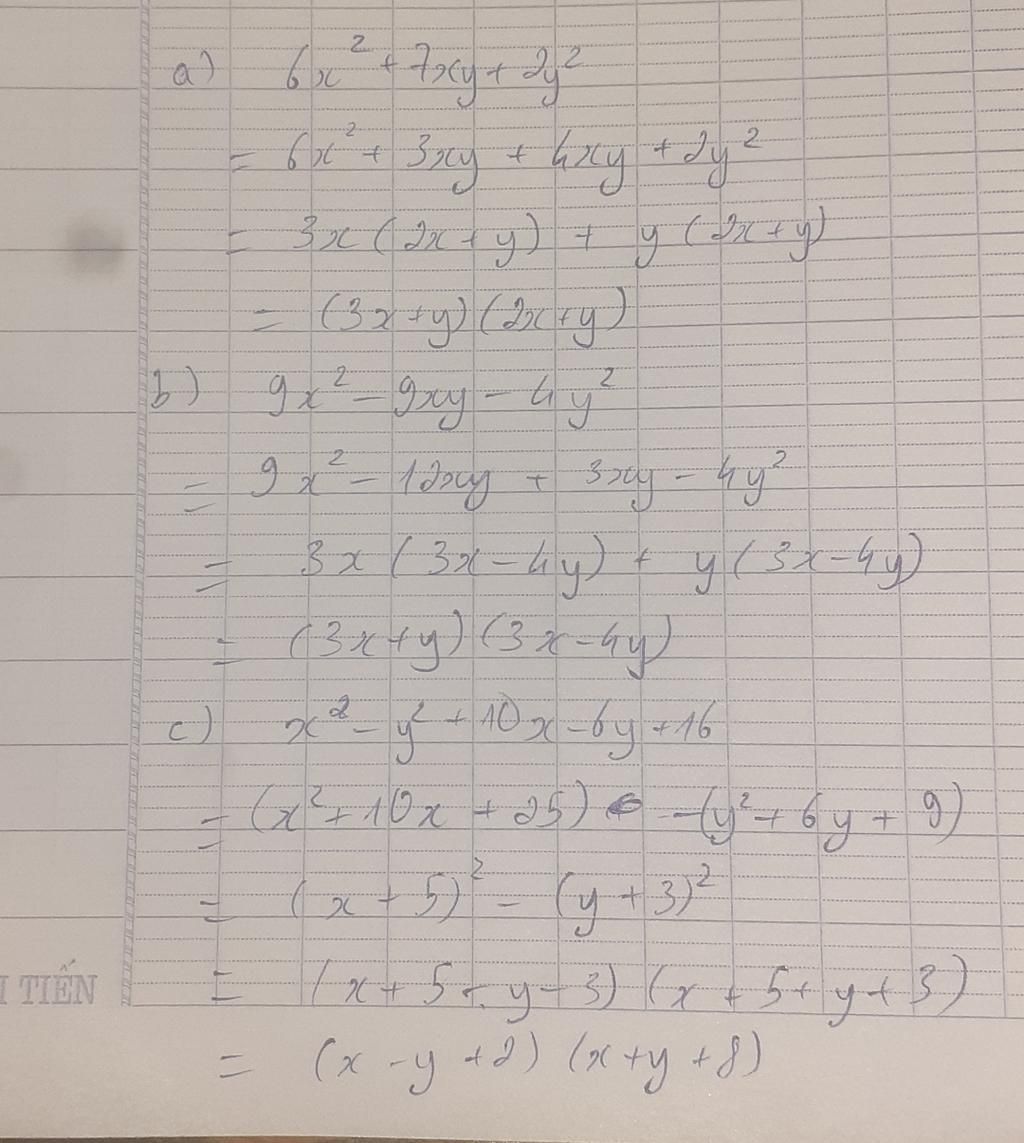 a) 6x² + 7xy + 2y²
= 6x² + 3xy + 4xy + 2y²
= 3x (2x + y) + y (2x + y)
= (3x + y) (2x + y)
b) 9x² - 9xy - 4y²
= 9x² - 12xy + 3xy - 4y²
= 3x (3x - 4y) + y (3x - 4y)
= (3x + y) (3x - 4y)
c) x² - y² + 10x - 6y + 16
= (x² + 10x + 25) - (y² + 6y + 9)
= (x + 5)² - (y + 3)²
= (x + 5 - y - 3) (x + 5 + y + 3)
= (x - y + 2) (x + y + 8)
TIẾN